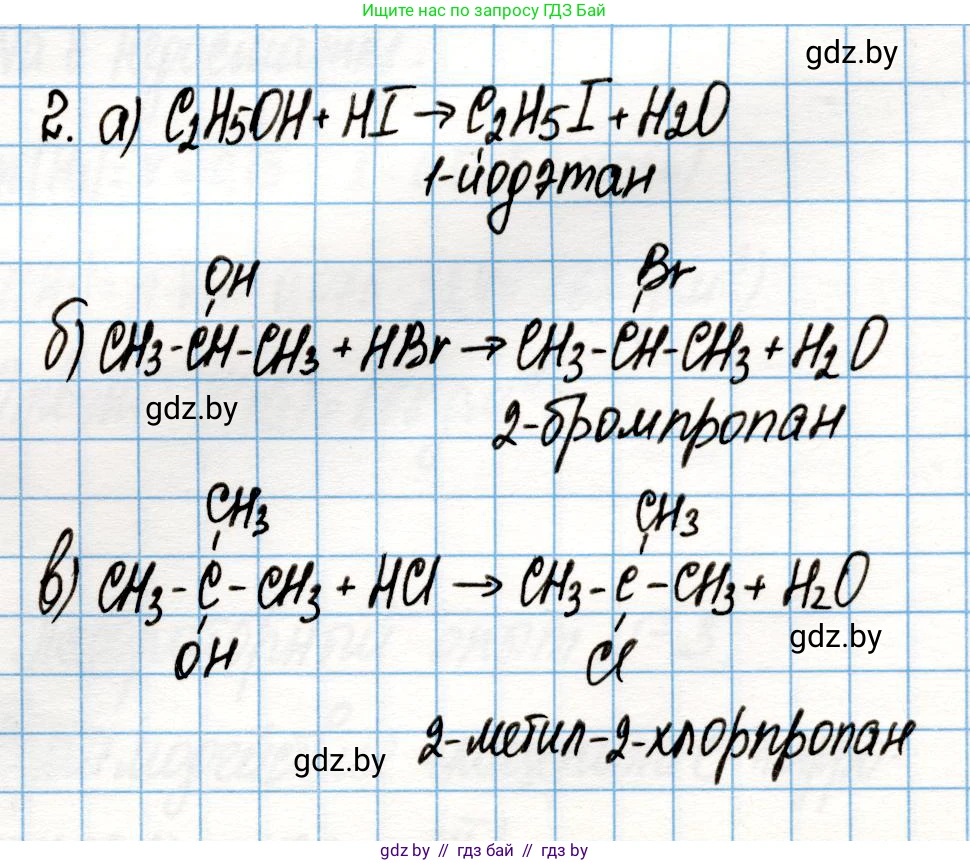 Ищите нас по запросу ГДЗ Бай
gdz.by
2. а) C2H5OH + HI → C2H5I + H2O
1-йодэтан
OH
Br
б) CH3-CH-CH3 + HBr → CH3-CH-CH3 + H2O
gdz.by
2-бромпропан
CH3
CH3
в) CH3-C-CH3 + HCl → CH3-C-CH3 + H2O
OH
Cl
gdz.by
2-метил-2-хлорпропан
gdz.by
gdz.by // гдз бай // гдз by